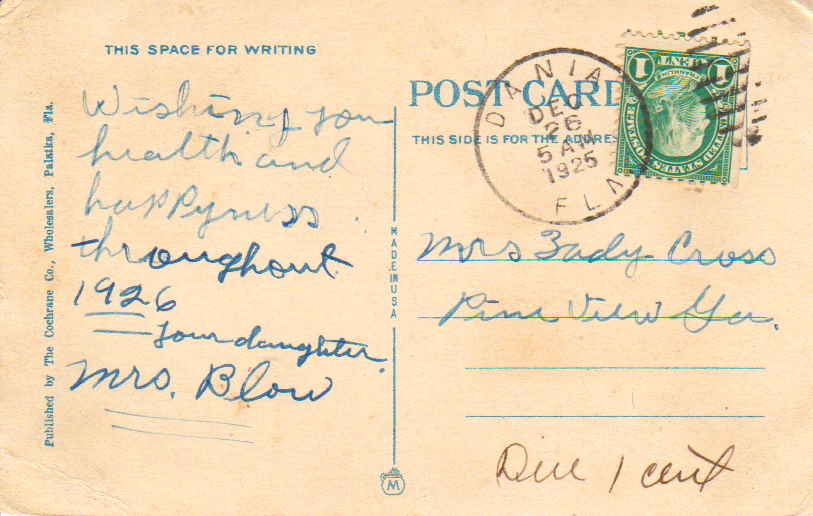 THIS SPACE FOR WRITING
Wishing you
health and
happyness
throughout
1926
Your daughter
Mrs. Blow
Published by The Cochrane Co., Wholesalers, Palatka, Fla.
MADE IN USA
M
POST CARD
THIS SIDE IS FOR THE ADDRESS
DANIA
DEC
26
5 AM
1925
FLA
1 CENT 1
FRANKLIN
UNITED STATES POSTAGE
Mrs Zady Cross
Pine View Ga.
Due 1 cent